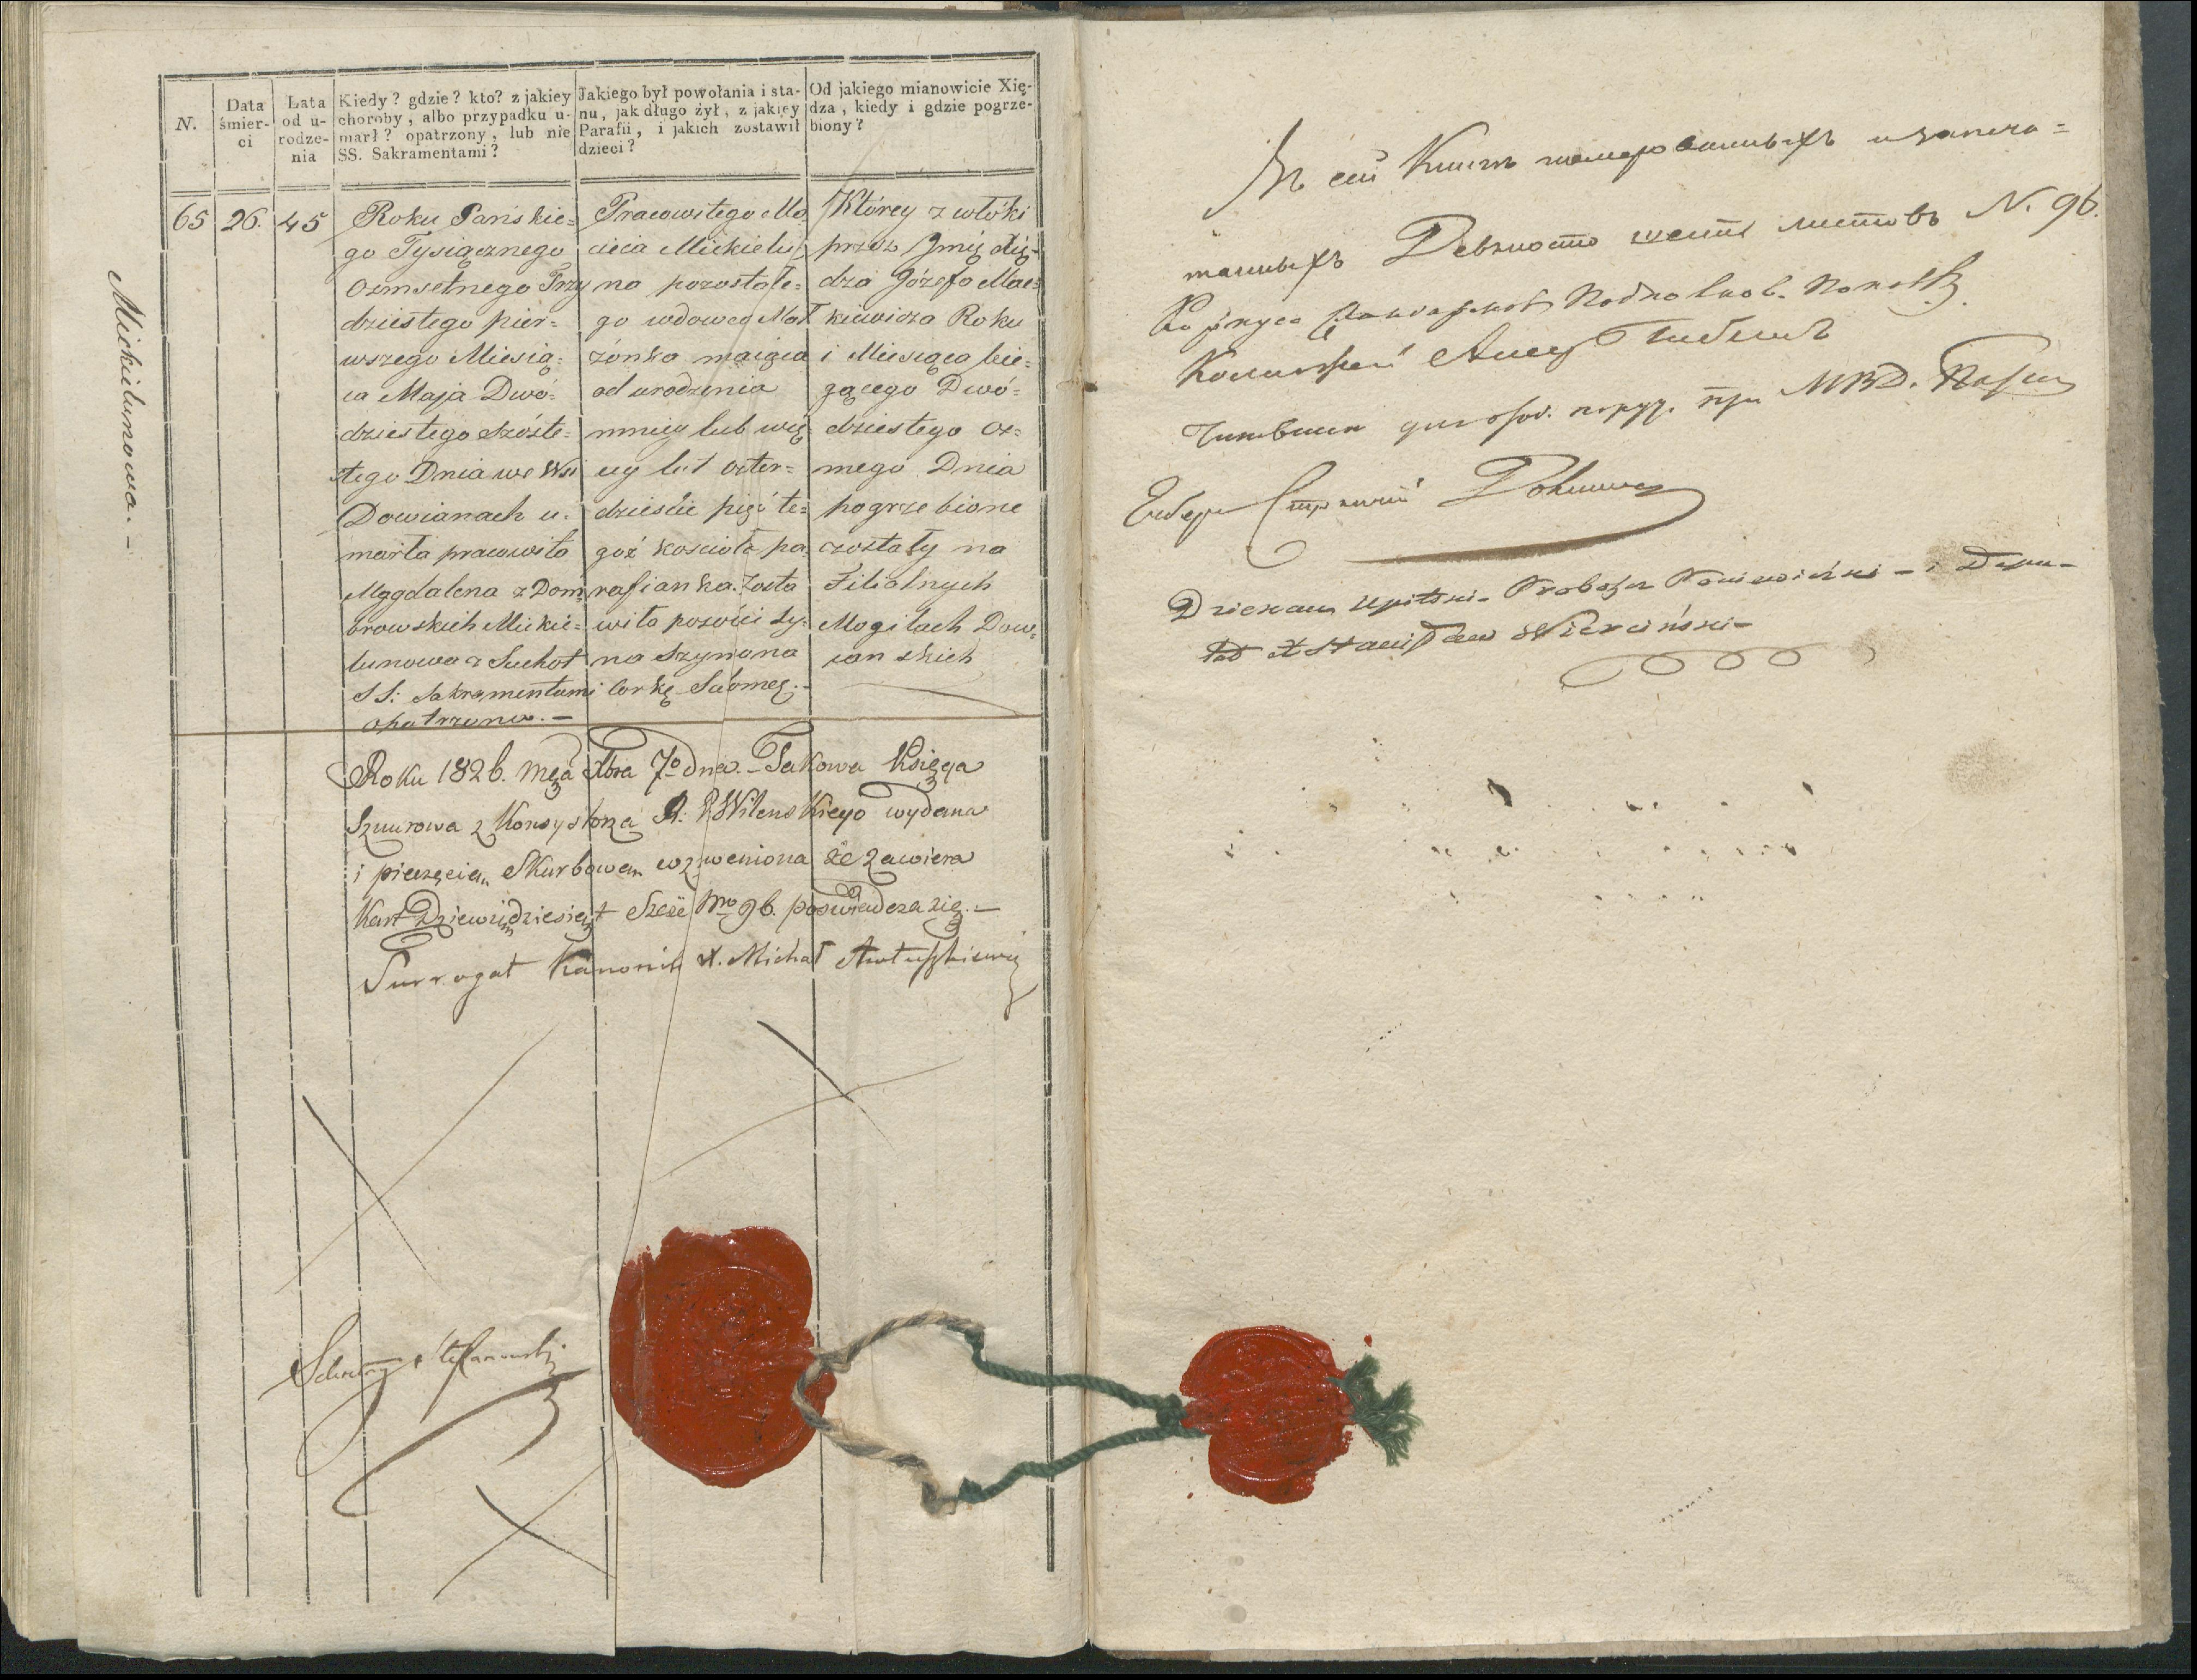 N.
Data śmier- ci
Lata od u- rodze- nia
Kiedy? gdzie? kto? z jakiey
choroby, albo przypadku u-
marł? opatrzony, lub nie
SS. Sakramentami?
Jakiego był powołania i sta-
nu, jak długo żył, z jakiey
Parafii, i jakich zostawił
dzieci?
Od jakiego mianowicie Xię-
dza, kiedy i gdzie pogrze-
biony?
Mickielunowa.-
65
26.
45
Roku Pańskie=
go Tysiącznego
Osmsetnego Trzy
dziestego pier=
wszego Miesią=
ca Maja Dwó=
dziestego Szóste=
tego Dnia we Wsi
Dowianach u=
marła pracowita
Magdalena z Dom=
browskich Mickie=
lunowa z Suchot
SS: Sakramentami
opatrzona.-
Pracowitego Ma
cieia Mickielu
na pozostałe=
go wdowca Mał
żonka maiąca
od urodzenia
mniey lub wię
cey lat czter=
dzieście pięć te=
goż kościoła pa
rafianka. Zosta
wiła posobie sy=
na Szymona
Corkę Salomeą.-
Którey zwłóki
przez Jmię Xię=
dza Józefa Mac=
kiewicza Roku
i Miesiąca bie=
żącego Dwó=
dziestego Os=
mego Dnia
pogrzebione
zostały na
Filialnych
Mogiłach Dow=
ian skich
Roku 1826. Mca Xbra 7o dnia.- Takowa Księga
Sznurowa z Konsystorza R: K Wileńskiego wydana
i pieczęcią Skarbową wzmocniona że zawiera
Kart Dziewięćdziesiąt Sześć Nro 96. poświadcza się.-
Surrogat Kanonik X. Michał
Въ сей Книгѣ шнурованныхъ и запеча=
танныхъ Девяносто шесть листовъ N. 96.
Dziekan Upitski Proboszcz Poniewieżski - i Depu-
tat X Stanisław